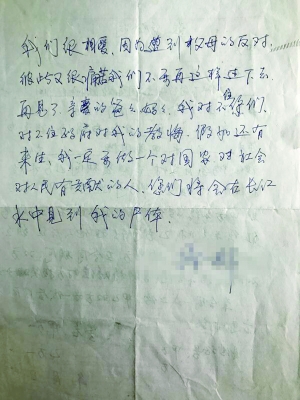 我们很相爱,因为遭到父母的反对,
彼此又很痛苦我们不要再这样过下去
再见了亲爱的爸爸妈妈,我对不住你们,
对不住政府对我的教悔,假如还有
来生,我一定要做一个对国家对社会
对人民有贡献的人,你们将会在长江
水中见到我的尸体.